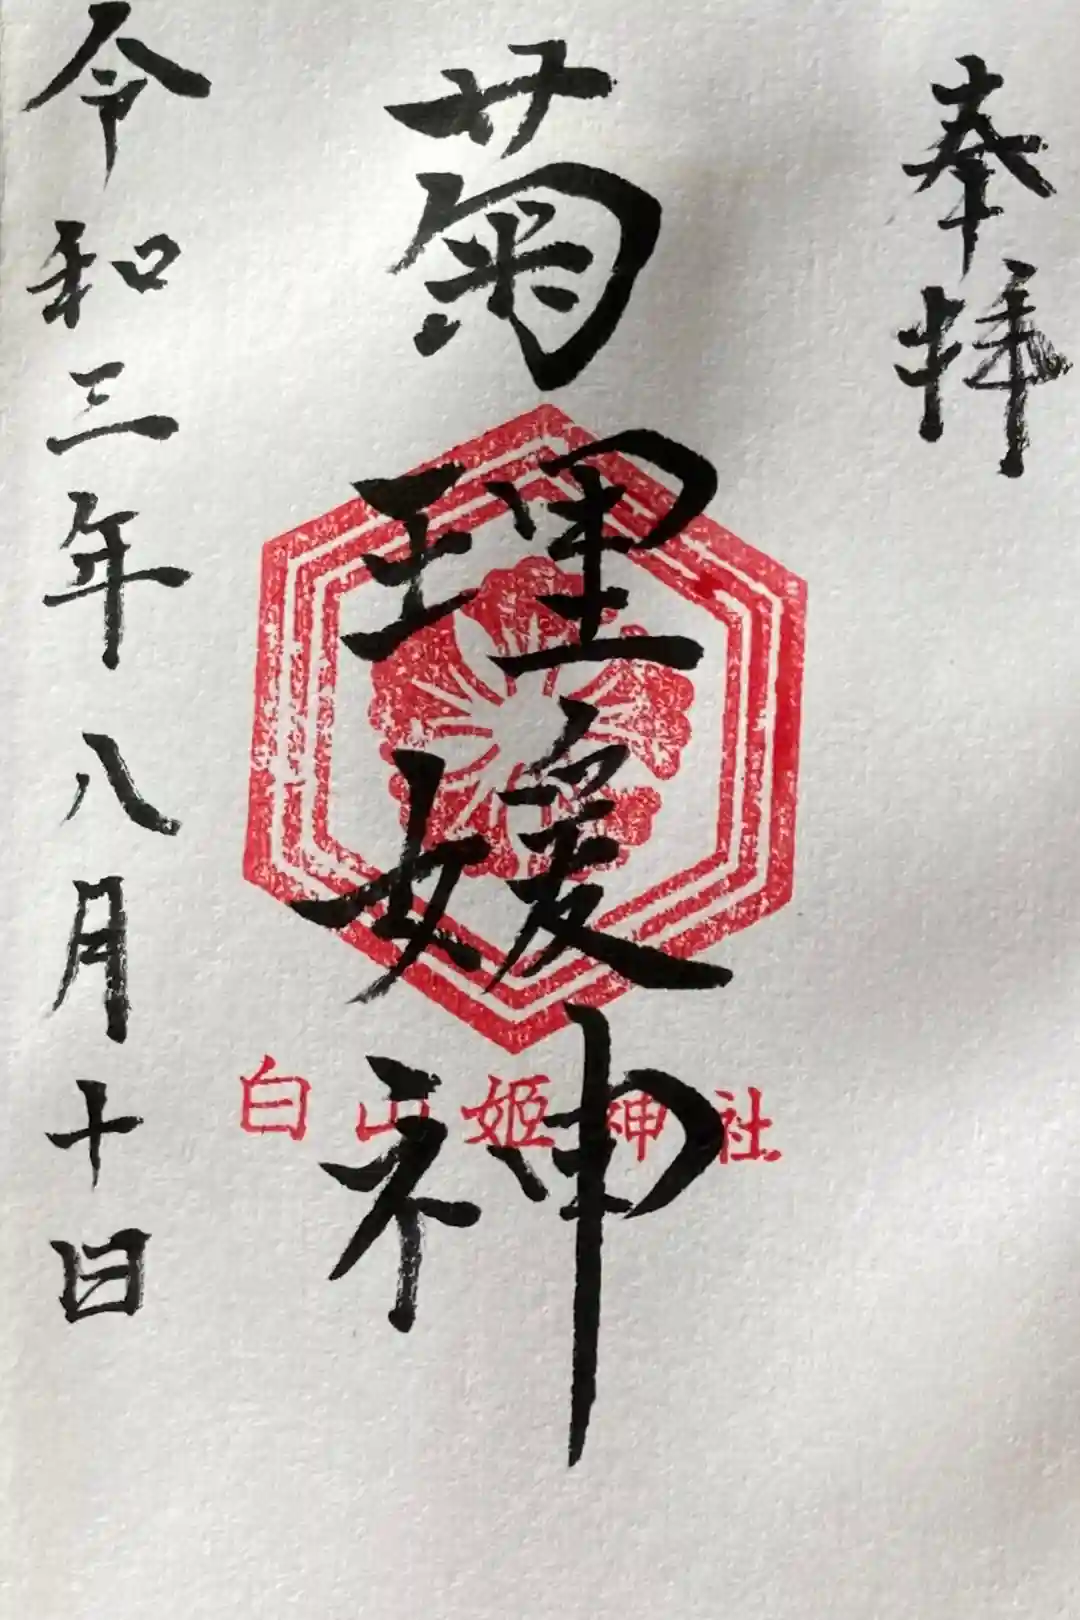 奉拝
菊理媛神
白山姫神社
令和三年八月十日